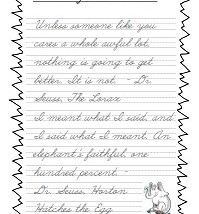 Unless someone like you
cares a whole awful lot,
nothing is going to get
better. It is not. - Dr.
Seuss, The Lorax
I meant what I said, and
I said what I meant. An
elephant's faithful, one
hundred percent. -
Dr. Seuss, Horton
Hatches the Egg